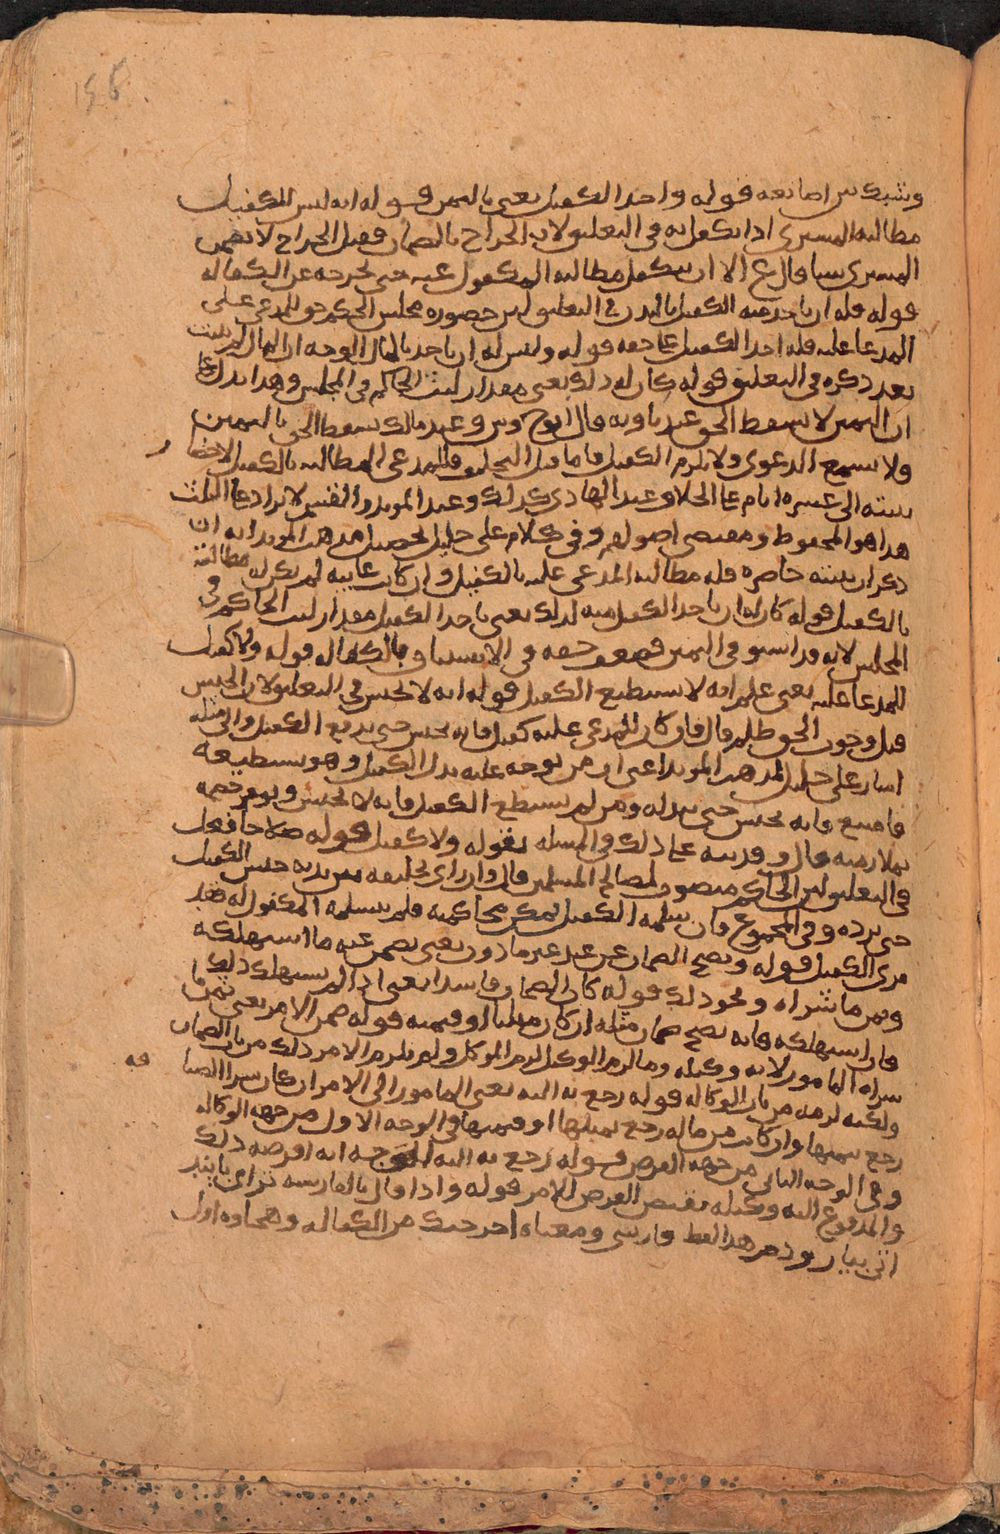 وشبك بين اصابعه قوله واخذ الكفيل يعني باليمين قوله انه ليس للكفيل
مطالبة المشتري اذا تكفل به في التعليق لان الخراج بالضمان فقبل الخراج لا يضمن
المشتري شيا قال ع الا ان يتكفل مطالبة المكفول عنه حتى يخرجه عن الكفالة
قوله فله ان ياخذ منه الكفيل بالبدن في التعليق لان حضوره مجلس الحكم حق للمدعي على
المدعا عليه فله اخذ الكفيل على حقه قوله وليس له ان ياخذ بالمال الوجه ان المال لم يثبت
بعد ذكره في التعليق قوله كان له ذلك يعني مقدار لبث الحاكم في المجلس وهذا يدل على
ان اليمين لا يسقط الحق عندنا وبه قال ابو ح وش وعند مالك يسقط الحق باليمين
ولا تسمع الدعوى ولا يلزم الكفيل فاما قبل التحليف فللمدعي المطالبة بالكفيل لاحضار
بينته الى عشرة ايام على الخلاف عند الهادي كذلك وعند المويد والفقيه لا يزاد على الثلث
هذا هو المحفوظ ومقتضى اصولهم وفي كلام علي خليل لتحصيل مذهب المويد انه ان
ذكر ان بينته حاضرة فله مطالبة المدعى عليه بالكفيل وان كانت غايبة لم يكن له مطالبته
بالكفيل قوله كان له ان ياخذ الكفيل منه لذلك يعني ياخذ الكفيل مقدار لبث الحاكم في
المجلس لانه قد استوفى اليمين فضعف حقه في الاستيثاق بالكفالة قوله ولا كفيل
للمدعا عليه يعني علم انه لا يستطيع الكفيل قوله انه لا يحبس في التعليق لان الحبس
قبل وجوب الحق ظلم قال فان كان للمدعى عليه كفيل فانه يحبس حتى يدفع الكفيل والى مثله
اشار علي خليل لمذهب المويد اعني ان من توجه عليه بذل الكفيل وهو يستطيعه
فامتنع فانه يحبس حتى يبذله ومن لم يستطع الكفيل فانه لا يحبس ويومر خصمه
بملازمته قال و قد نبه على ذلك في المسلة بقوله ولا كفيل قوله صلاحا فعل
في التعليق لان الحاكم منصوب لمصالح المسلمين قال وان راى تخليفه بين يديه حبس الكفيل
حتى يرده وفي المجموع فان سلمه الكفيل يمكن محاكمته فلم يتسلمه المكفول له فقد
برى الكفيل قوله ويصح الضمان عن عبد غير ماذون يعني يضمن عنه ما استهلكه
وثمن ما شراه ونحو ذلك قوله كان الضمان فاسدا يعني اذا لم يستهلك ذلك
فان استهلكه فانه يصح ضمان مثله ان كان مثليا او قيمته قوله ضمن الامر يعني ثمن ما
شراه المامور لانه وكيله وما لزم الوكيل لزم الموكل ولم يلزم الامر ذلك من باب الضمان
ولكنه لزمه من باب الوكالة قوله رجع به اليه يعني المامور الى الامر ان كان شرا الضيافه
رجع بثمنها وان كانت من ماله رجع بمثلها او قيمتها في الوجه الاول من جهة الوكالة
وفي الوجه الثاني من جهة القرض قوله رجع به اليه الوجه انه اقرضه ذلك
والمدفوع اليه وكيله بقبض القرض للامر قوله واذا قال بالفارسية
هذا لفظ فارسي ومعناه اخرجتك من الكفالة وهما وه اول